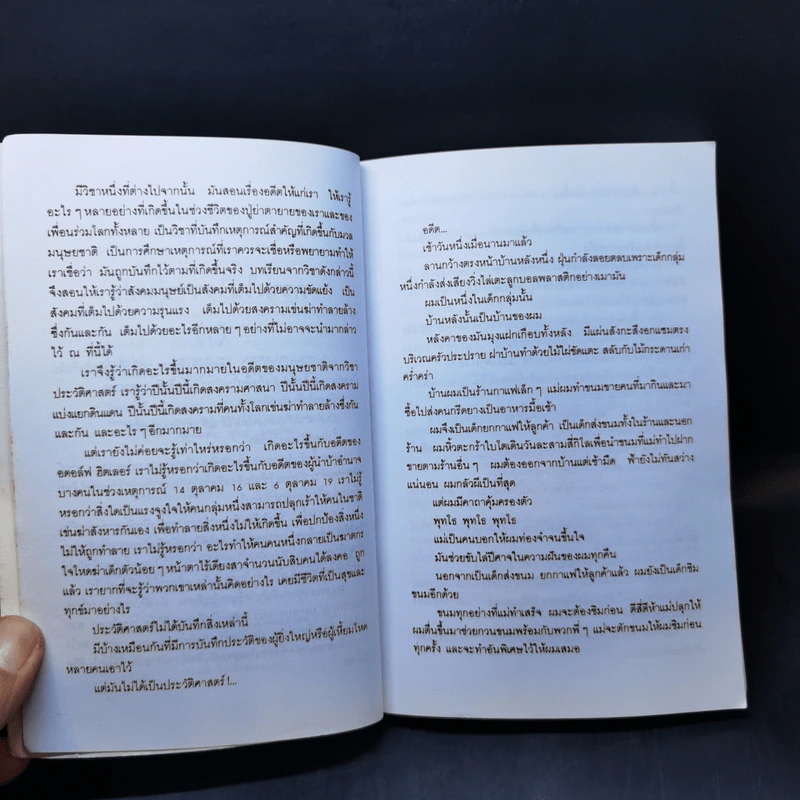 มีวิชาหนึ่งที่ต่างไปจากนั้น มันสอนเรื่องอดีตให้แก่เรา ให้เรารู้
อะไร ๆ หลายอย่างที่เกิดขึ้นในช่วงชีวิตของปู่ย่าตายายของเราและของ
เพื่อนร่วมโลกทั้งหลาย เป็นวิชาที่บันทึกเหตุการณ์สำคัญที่เกิดขึ้นกับมวล
มนุษยชาติ เป็นการศึกษาเหตุการณ์ที่เราควรจะเชื่อหรือพยายามทำให้
เราเชื่อว่า มันถูกบันทึกไว้ตามที่เกิดขึ้นจริง บทเรียนจากวิชาดังกล่าวนี้
จึงสอนให้เรารู้ว่าสังคมมนุษย์เป็นสังคมที่เต็มไปด้วยความขัดแย้ง เป็น
สังคมที่เต็มไปด้วยความรุนแรง เต็มไปด้วยสงครามเข่นฆ่าทำลายล้าง
ซึ่งกันและกัน เต็มไปด้วยอะไรอีกหลาย ๆ อย่างที่ไม่อาจจะนำมากล่าว
ไว้ ณ ที่นี้ได้
เราจึงรู้ว่าเกิดอะไรขึ้นมากมายในอดีตของมนุษยชาติจากวิชา
ประวัติศาสตร์ เรารู้ว่าปีนั้นปีนี้เกิดสงครามศาสนา ปีนั้นปีนี้เกิดสงคราม
แบ่งแยกดินแดน ปีนั้นปีนี้เกิดสงครามที่คนทั้งโลกเข่นฆ่าทำลายล้างซึ่งกัน
และกัน และอะไร ๆ อีกมากมาย
แต่เรายังไม่ค่อยจะรู้เท่าไหร่หรอกว่า เกิดอะไรขึ้นกับอดีตของ
อดอล์ฟ ฮิตเลอร์ เราไม่รู้หรอกว่าเกิดอะไรขึ้นกับอดีตของผู้นำบ้าอำนาจ
บางคนในช่วงเหตุการณ์ 14 ตุลาคม 16 และ 6 ตุลาคม 19 เราไม่รู้
หรอกว่าสิ่งใดเป็นแรงจูงใจให้คนกลุ่มหนึ่งสามารถปลุกเร้าให้คนในชาติ
เข่นฆ่าสังหารกันเอง เพื่อทำลายสิ่งหนึ่งไม่ให้เกิดขึ้น เพื่อปกป้องสิ่งหนึ่ง
ไม่ให้ถูกทำลาย เราไม่รู้หรอกว่า อะไรทำให้คนคนหนึ่งกลายเป็นฆาตกร
ใจโหดฆ่าเด็กตัวน้อย ๆ หน้าตาไร้เดียงสาจำนวนนับสิบคนได้ลงคอ ถูก
แล้ว เรายากที่จะรู้ว่าพวกเขาเหล่านั้นคิดอย่างไร เคยมีชีวิตที่เป็นสุขและ
ทุกข์มาอย่างไร
ประวัติศาสตร์ไม่ได้บันทึกสิ่งเหล่านี้
มีบ้างเหมือนกันที่มีการบันทึกประวัติของผู้ยิ่งใหญ่หรือผู้เหี้ยมโหด
หลายคนเอาไว้
แต่มันไม่ได้เป็นประวัติศาสตร์!...
อดีต...
เช้าวันหนึ่งเมื่อนานมาแล้ว
ลานกว้างตรงหน้าบ้านหลังหนึ่ง ฝุ่นกำลังลอยตลบเพราะเด็กกลุ่ม
หนึ่งกำลังส่งเสียงวิ่งไล่เตะลูกบอลพลาสติกอย่างเมามัน
ผมเป็นหนึ่งในเด็กกลุ่มนั้น
บ้านหลังนั้นเป็นบ้านของผม
หลังคาของมันมุงแฝกเกือบทั้งหลัง มีแผ่นสังกะสีงอกแซมตรง
บริเวณครัวประปราย ฝาบ้านทำด้วยไม้ไผ่ขัดแตะ สลับกับไม้กระดานเก่า
คร่ำคร่า
บ้านผมเป็นร้านกาแฟเล็ก ๆ แม่ผมทำขนมขายคนที่มากินและมา
ซื้อไปส่งคนกรีดยางเป็นอาหารมื้อเช้า
ผมจึงเป็นเด็กยกกาแฟให้ลูกค้า เป็นเด็กส่งขนมทั้งในร้านและนอก
ร้าน ผมหิ้วตะกร้าใบโตเดินวันละสามสี่กิโลเพื่อนำขนมที่แม่ทำไปฝาก
ขายตามร้านอื่น ๆ ผมต้องออกจากบ้านแต่เช้ามืด ฟ้ายังไม่ทันสว่าง
แน่นอน ผมกลัวผีเป็นที่สุด
แต่ผมมีคาถาคุ้มครองตัว
พุทโธ พุทโธ พุทโธ
แม่เป็นคนบอกให้ผมท่องจำจนขึ้นใจ
มันช่วยขับไล่ปีศาจในความฝันของผมทุกคืน
นอกจากเป็นเด็กส่งขนม ยกกาแฟให้ลูกค้าแล้ว ผมยังเป็นเด็กชิม
ขนมอีกด้วย
ขนมทุกอย่างที่แม่ทำเสร็จ ผมจะต้องชิมก่อน ตีสี่ตีห้าแม่ปลุกให้
ผมตื่นขึ้นมาช่วยกวนขนมพร้อมกับพวกพี่ ๆ แม่จะตักขนมให้ผมชิมก่อน
ทุกครั้ง และจะทำอันพิเศษไว้ให้ผมเสมอ